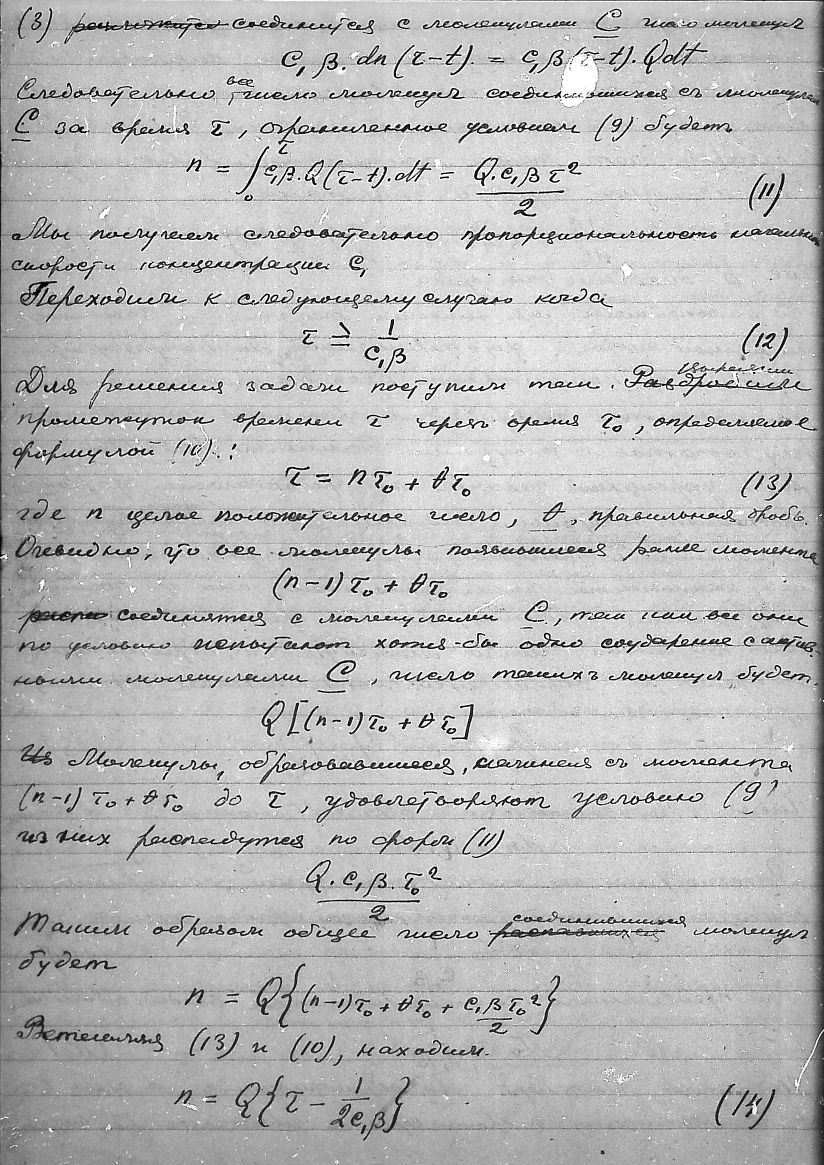 (3) разложится соединится с молекулами C число молекул
C₁β.dn(τ-t). = C₁β(τ-t).Qdt
Следовательно все число молекул соединившихся съ молекулами
C за время τ, ограниченное условием (9) будет
n = ∫₀^τ C₁β.Q(τ-t).dt = Q.C₁βτ²/2 (11)
Мы получаем следовательно пропорциональность начальной
скорости концентрации C₁
Переходим к следующему случаю когда
τ ≧ 1/C₁β (12)
Для решения задачи поступим так. Раздробим выразим
промежуток времени τ черезъ время τ₀, определяемое
формулой (10).:
τ = nτ₀ + θτ₀ (13)
где n целое положительное число, θ, правильная дробь.
Очевидно, что все молекулы появившиеся ранее момента
(n-1)τ₀ + θτ₀
распа соединятся с молекулами C, так как все они
по условию испытают хотя-бы одно соударение с актив-
ными молекулами C, число такихъ молекул будет.
Q[(n-1)τ₀ + θτ₀]
Из Молекулы, образовавшиеся, начиная съ момента
(n-1)τ₀ + θτ₀ до τ, удовлетворяют условию (9)
из них распадутся по форм (11)
Q.C₁β.τ₀²/2
Таким образом общее число распавшихся соединившихся молекул
будет
n = Q{(n-1)τ₀ + θτ₀ + C₁βτ₀²/2}
(13) и (10), находим.
n = Q{τ - 1/2C₁β} (14)